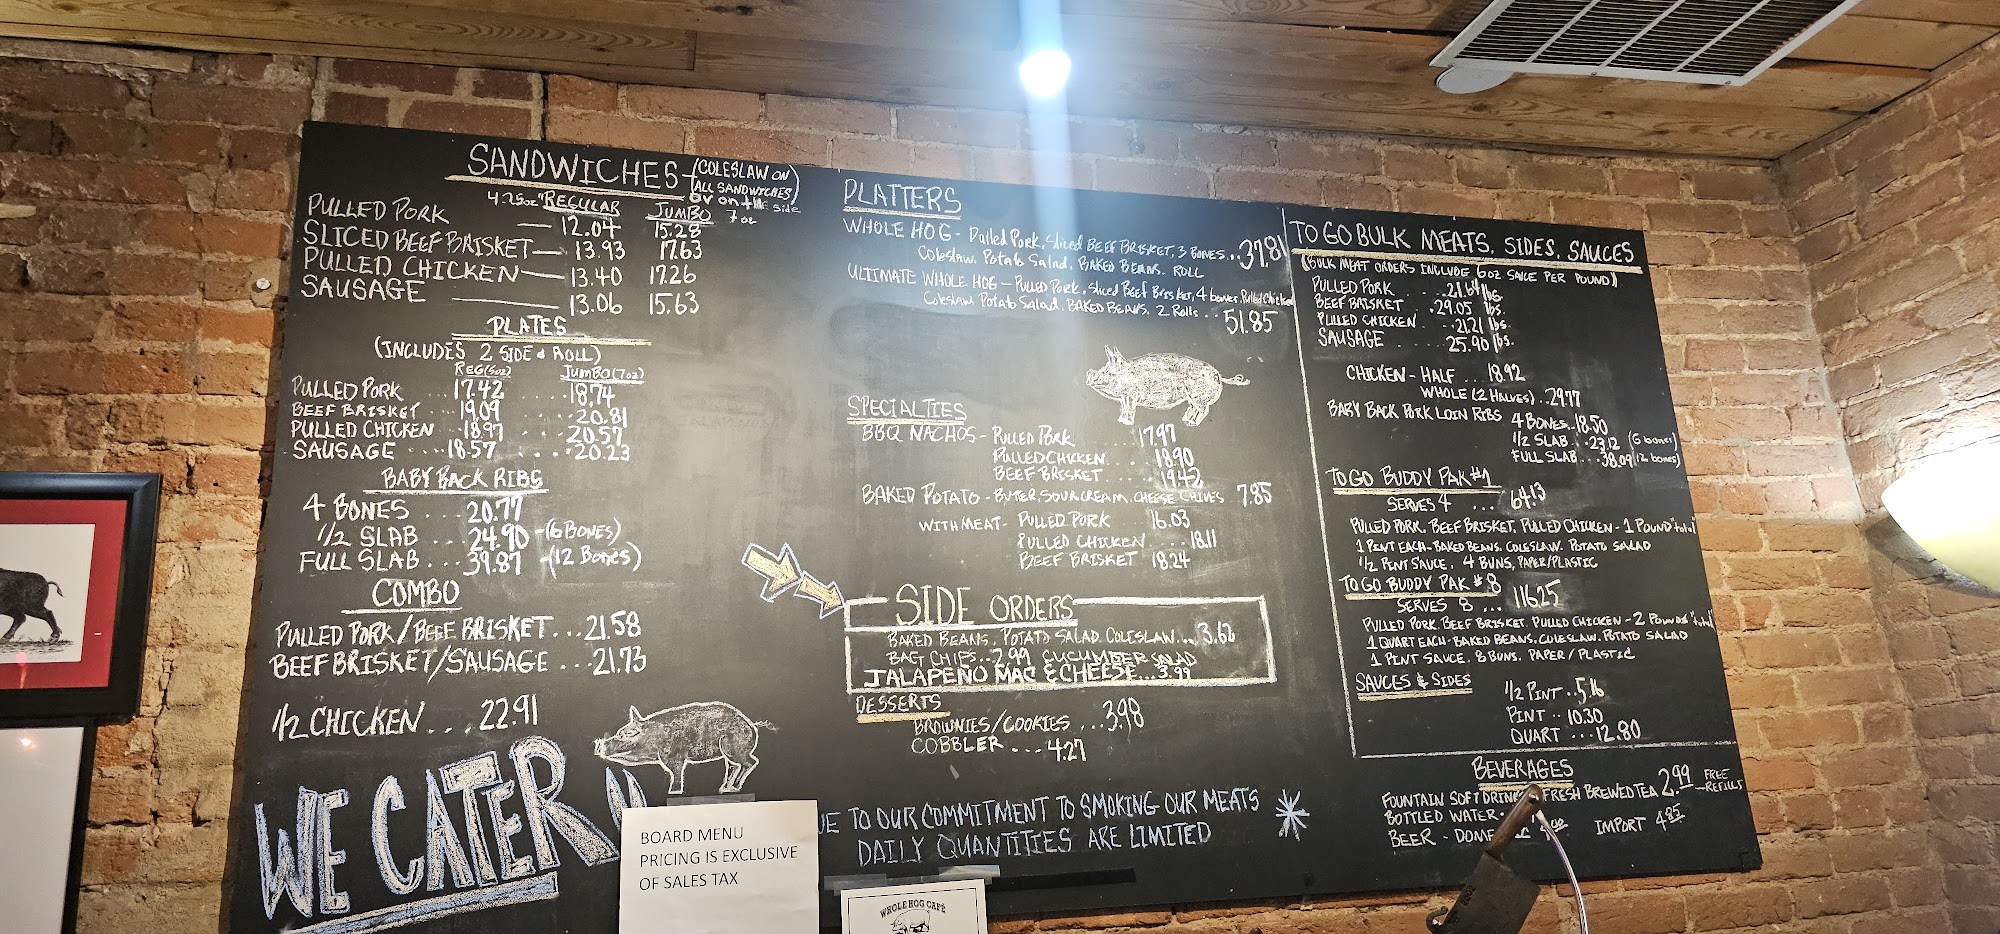 SANDWICHES - (COLESLAW ON
ALL SANDWICHES)
or on the side
4.25oz "REGULAR JUMBO 7oz
PULLED PORK — 12.04 15.28
SLICED BEEF BRISKET — 13.93 17.63
PULLED CHICKEN — 13.40 17.26
SAUSAGE — 13.06 15.63
PLATES
(INCLUDES 2 SIDE & ROLL)
REG(5oz) JUMBO(7oz)
PULLED PORK ... 17.42 ..... 18.74
BEEF BRISKET ... 19.09 ..... 20.81
PULLED CHICKEN .. 18.97 .... 20.57
SAUSAGE .... 18.57 ..... 20.23
BABY BACK RIBS
4 BONES ... 20.77
1/2 SLAB ... 24.90 - (6 BONES)
FULL SLAB ... 39.87 - (12 BONES)
COMBO
PULLED PORK/BEEF BRISKET...21.58
BEEF BRISKET/SAUSAGE ...21.73
1/2 CHICKEN ... 22.91
WE CATER
BOARD MENU
PRICING IS EXCLUSIVE
OF SALES TAX
PLATTERS
WHOLE HOG - Pulled Pork, Sliced BEEF BRISKET, 3 BONES... 37.81
Coleslaw, Potato Salad, BAKED BEANS, ROLL
ULTIMATE WHOLE HOG - PULLED PORK, Sliced Beef Brisket, 4 bones, Pulled Chicken
Coleslaw Potato Salad, BAKED BEANS, 2 Rolls ... 51.85
SPECIALTIES
BBQ NACHOS - PULLED PORK .... 17.97
PULLED CHICKEN .... 18.90
BEEF BRISKET .... 19.42
BAKED POTATO - BUTTER, SOUR CREAM, CHEESE CHIVES 7.85
WITH MEAT - PULLED PORK ... 16.03
PULLED CHICKEN .... 18.11
BEEF BRISKET 18.24
SIDE ORDERS
BAKED BEANS, POTATO SALAD, COLESLAW.... 3.62
BAG CHIPS...2.99 CUCUMBER SALAD
JALAPEÑO MAC & CHEESE...3.99
DESSERTS
BROWNIES/COOKIES ...3.98
COBBLER .... 4.27
UE TO OUR COMMITMENT TO SMOKING OUR MEATS
DAILY QUANTITIES ARE LIMITED
WHOLE HOG CAFE
TO GO BULK MEATS, SIDES, SAUCES
(BULK MEAT ORDERS INCLUDE 6oz SAUCE PER POUND)
PULLED PORK ... 21.64 lbs.
BEEF BRISKET . 29.05 lbs.
PULLED CHICKEN ... 21.21 lbs.
SAUSAGE ..... 25.90 lbs.
CHICKEN - HALF ... 18.92
WHOLE (2 HALVES) . 29.77
BABY BACK PORK LOIN RIBS 4 BONES..18.50
1/2 SLAB...23.12 (6 bones)
FULL SLAB...38.09 (12 bones)
TO GO BUDDY PAK #1
SERVES 4 ... 64.13
PULLED PORK, BEEF BRISKET, PULLED CHICKEN - 1 POUND "total"
1 PINT EACH - BAKED BEANS, COLESLAW, POTATO SALAD
1/2 PINT SAUCE, 4 BUNS, PAPER/PLASTIC
TO GO BUDDY PAK #8
SERVES 8 ... 116.25
PULLED PORK, BEEF BRISKET, PULLED CHICKEN - 2 POUNDS "total"
1 QUART EACH - BAKED BEANS, COLESLAW, POTATO SALAD
1 PINT SAUCE, 8 BUNS, PAPER/PLASTIC
SAUCES & SIDES
1/2 PINT ..5.16
PINT .. 10.30
QUART ... 12.80
BEVERAGES
FOUNTAIN SOFT DRINKS FRESH BREWED TEA 2.99 FREE REFILLS
BOTTLED WATER
BEER - DOME IMPORT 4.85